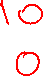 10
0